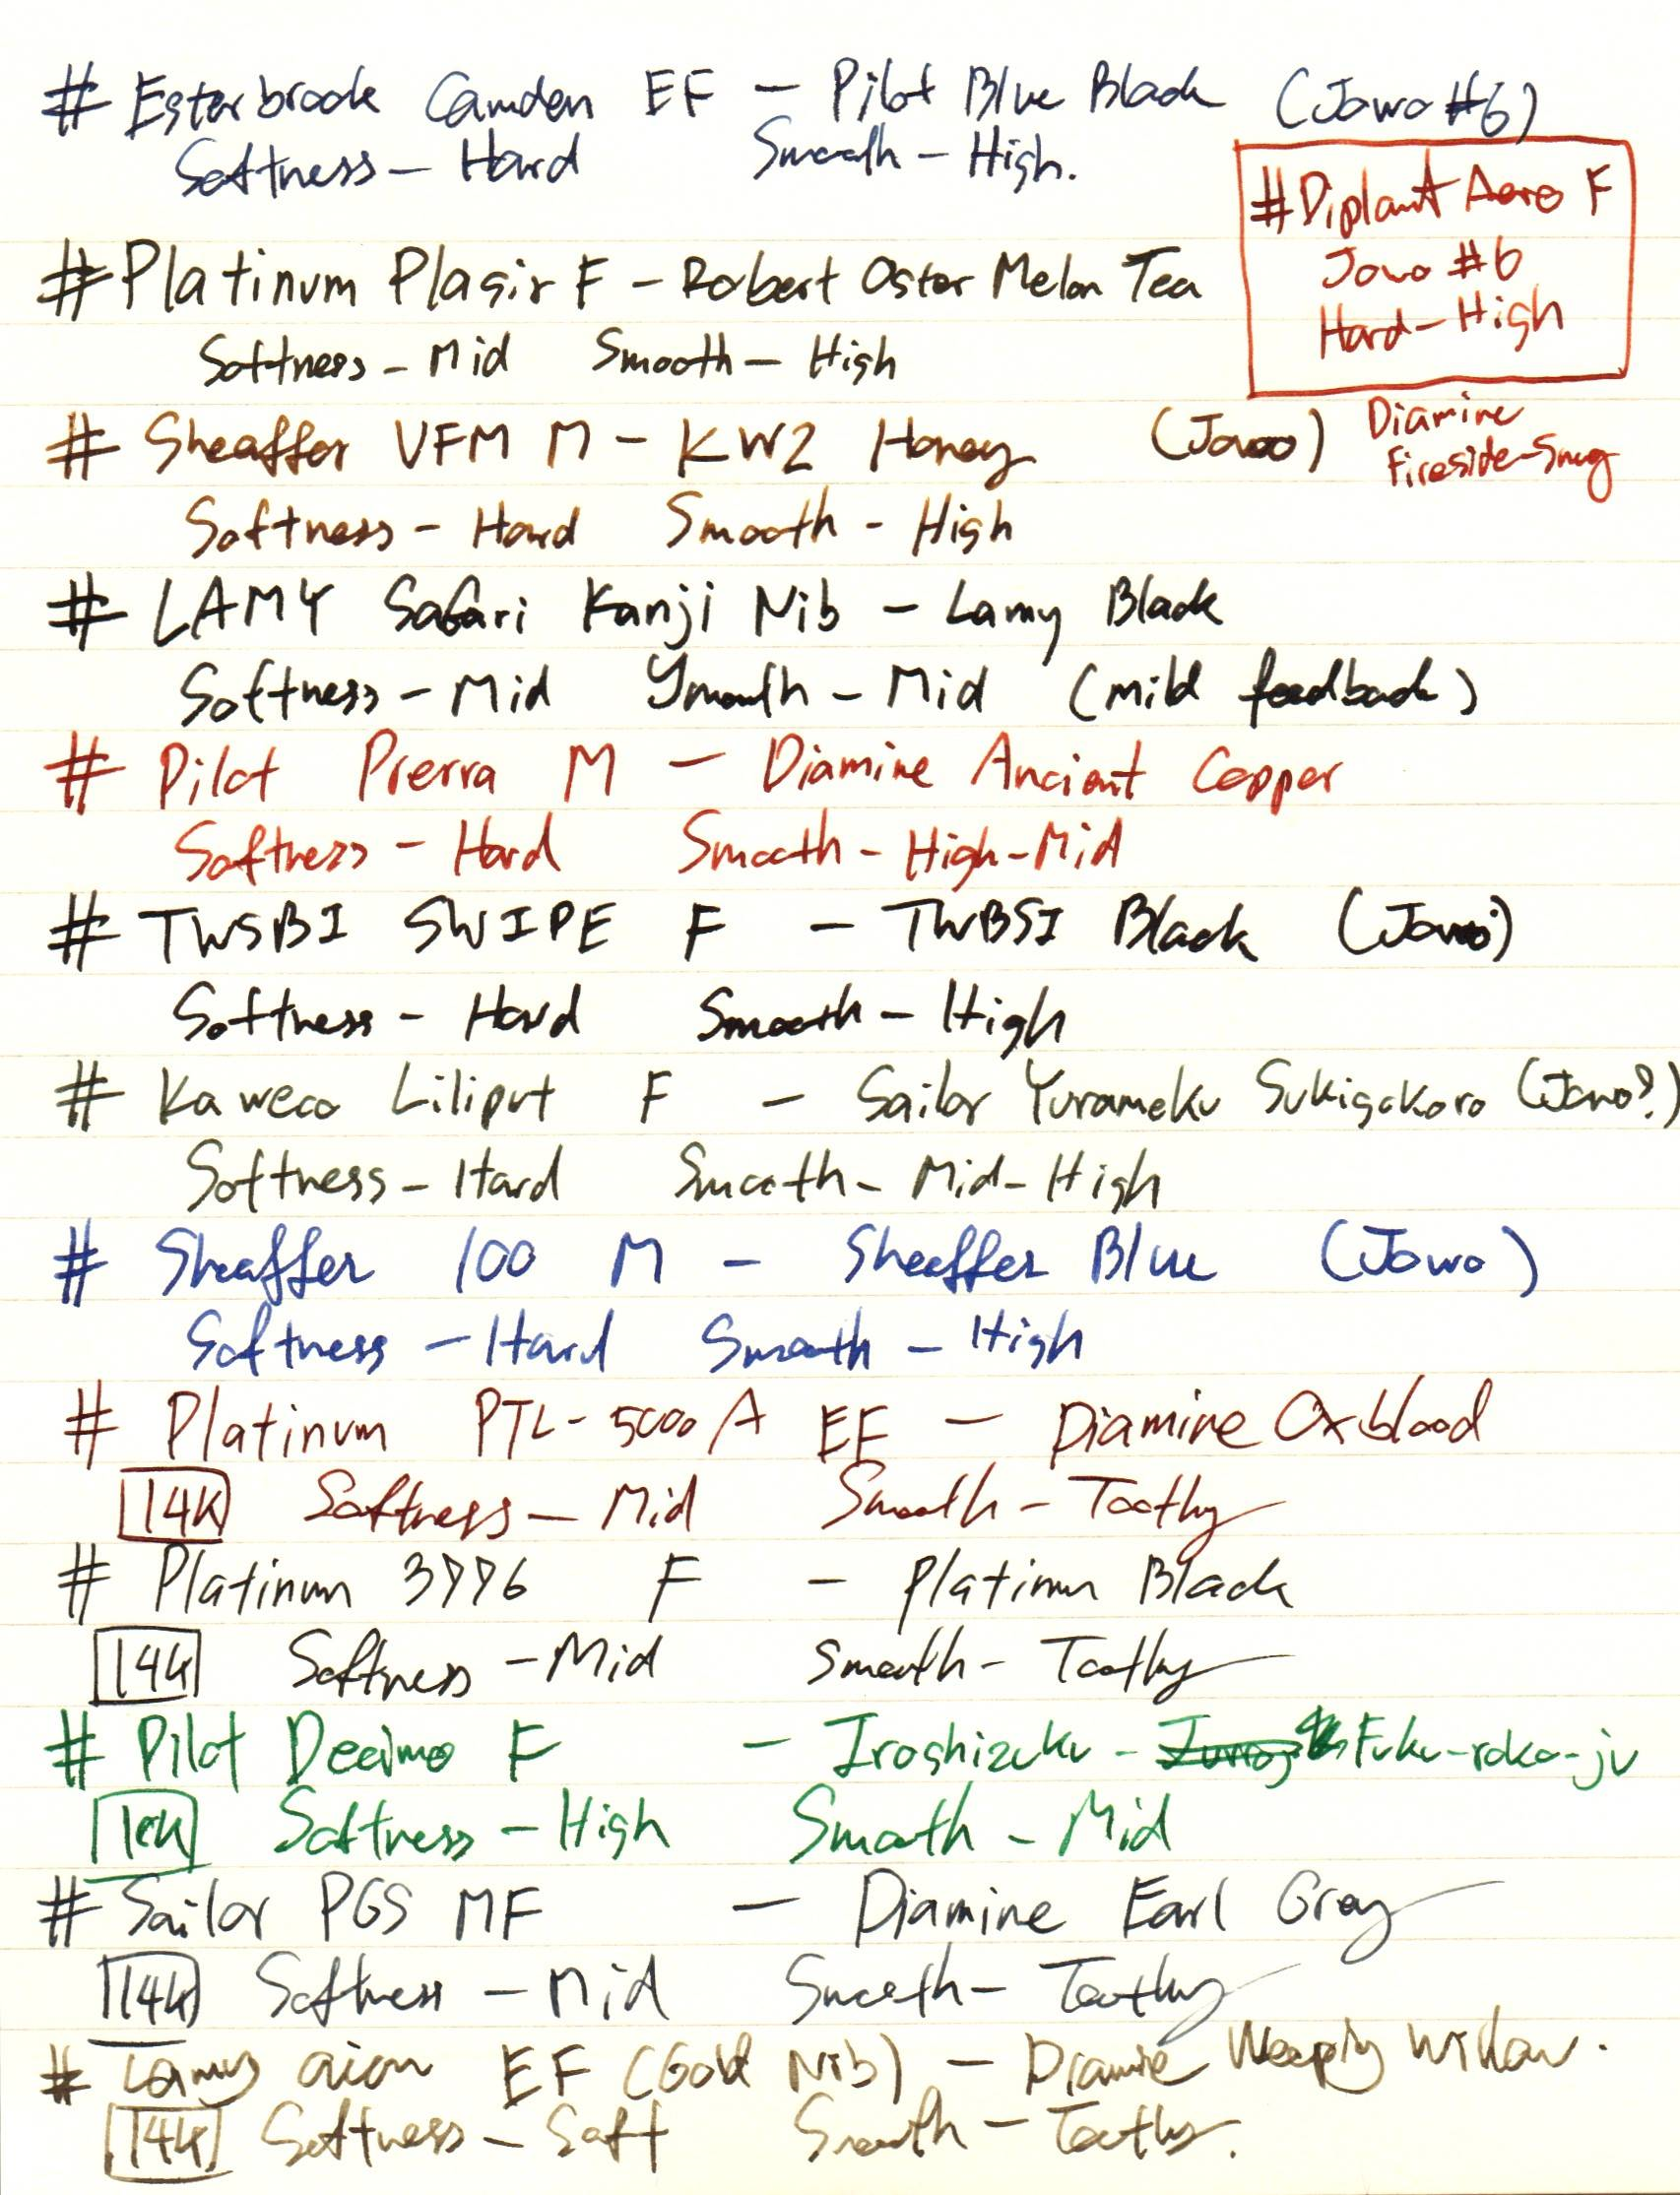 # Esterbrook Camden EF - Pilot Blue Black (Jowo #6)
Softness - Hard Smooth - High.
#Diplomat Aero F
Jowo #6
Hard - High
Diamine
Fireside-Snug
# Platinum Plasir F - Robert Oster Melon Tea
Softness - Mid Smooth - High
# Sheaffer VFM M - KWZ Honey (Jowo)
Softness - Hard Smooth - High
# LAMY Safari Kanji Nib - Lamy Black
Softness - Mid Smooth - Mid (mild feedback)
# Pilot Prerra M - Diamine Ancient Copper
Softness - Hard Smooth - High-Mid
# TWSBI SWIPE F - TWBSI Black (Jowo)
Softness - Hard Smooth - High
# Kaweco Liliput F - Sailor Yurameku Sukigokoro (Jowo?)
Softness - Hard Smooth - Mid-High
# Sheaffer 100 M - Sheeffer Blue (Jowo)
Softness - Hard Smooth - High
# Platinum PTL-5000A EF - Diamine Oxblood
14K Softness - Mid Smooth - Toothy
# Platinum 3776 F - Platinum Black
14K Softness - Mid Smooth - Toothy
# Pilot Decimo F - Iroshizuku - Fuku-roko-ju
18K Softness - High Smooth - Mid
# Sailor PGS MF - Diamine Earl Grey
14K Softness - Mid Smooth - Toothy
# Lamy aion EF (Gold Nib) - Diamine Weeping Willow.
14K Softness - Soft Smooth - Toothy.